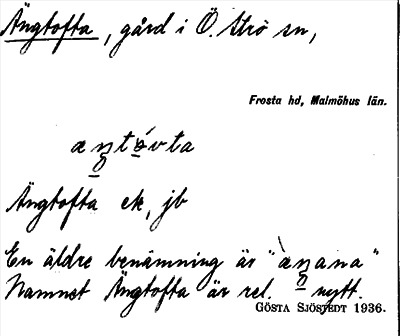 Ängtofta, gård i Ö. Strö sn,
Frosta hd, Malmöhus län.
Ängtofta ek, jb
En äldre benämning är "
Namnet Ängtofta är rel. nytt.
GÖSTA SJÖSTEDT 1936.